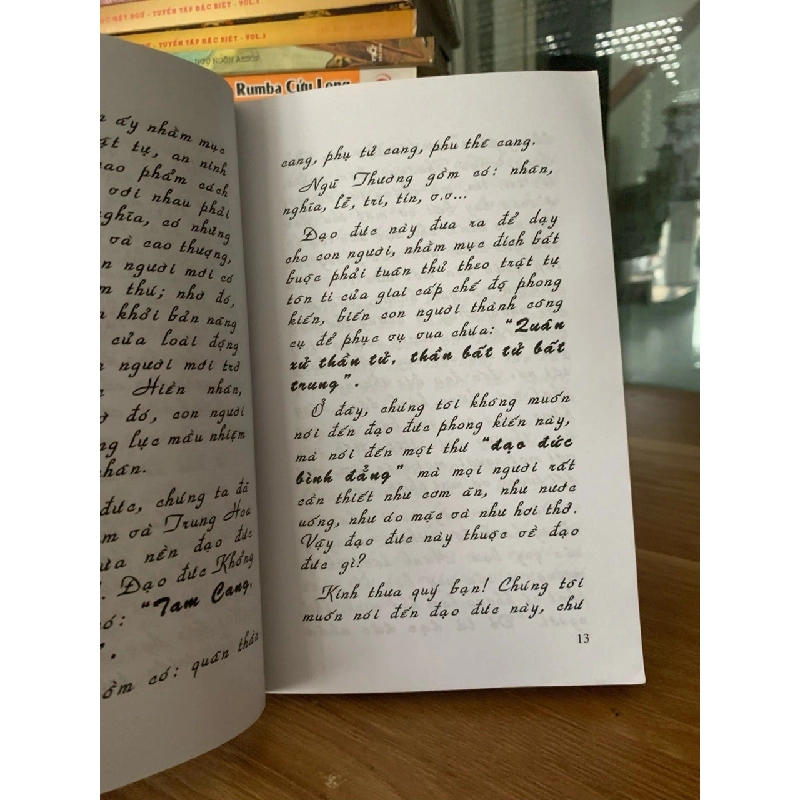 MẬT NGỮ - TUYỂN TẬP ĐẶC BIỆT - VOL.5
MẬT NGỮ - TUYỂN TẬP ĐẶC BIỆT - VOL.3
Rumba Cửu Long
ấy nhằm mục
tự, an ninh
cao phẩm cách
với nhau phải
nghĩa, có những
và cao thượng,
người mới có
thư; nhờ đó,
khởi bản năng
của loài động
người mới trở
Hiền nhân,
đó, con người
lực mầu nhiệm
đức, chúng ta đã
và Trung Hoa
nền đạo đức
Đạo đức Khổng
"Tam Cang,
".
gồm có: quân thần
cang, phụ tử cang, phu thê cang.
Ngũ Thường gồm có: nhân,
nghĩa, lễ, trí, tín, v.v...
Đạo đức này đưa ra để dạy
cho con người, nhằm mục đích bắt
buộc phải tuân thủ theo trật tự
tôn ti của giai cấp chế độ phong
kiến, biến con người thành công
cụ để phục vụ vua chúa: "Quân
xử thần tử, thần bất tử bất
trung".
Ở đây, chúng tôi không muốn
nói đến đạo đức phong kiến này,
mà nói đến một thứ "đạo đức
bình đẳng" mà mọi người rất
cần thiết như cơm ăn, như nước
uống, như áo mặc và như hơi thở.
Vậy đạo đức này thuộc về đạo
đức gì?
Kính thưa quý bạn! Chúng tôi
muốn nói đến đạo đức này, chứ
13